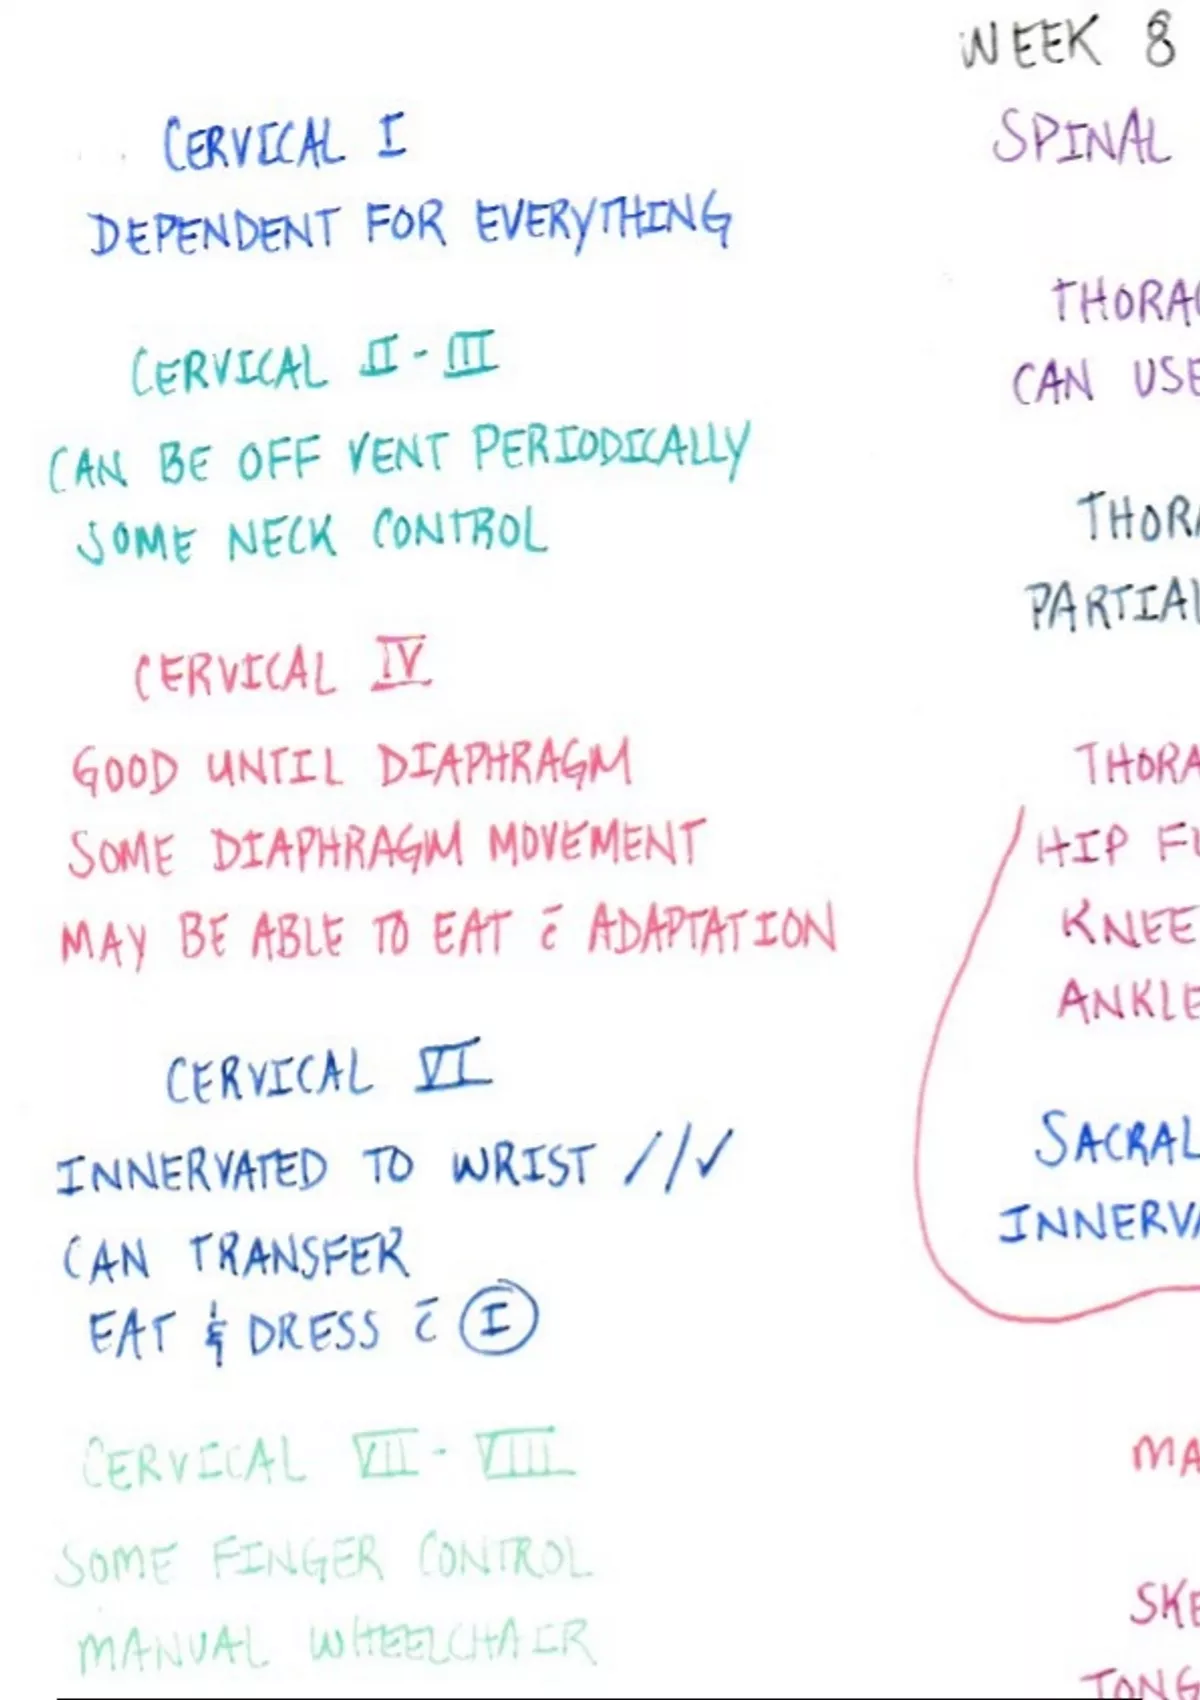 WEEK 8
SPINAL
CERVICAL I
DEPENDENT FOR EVERYTHING
CERVICAL II - III
CAN BE OFF VENT PERIODICALLY
SOME NECK CONTROL
CERVICAL IV
GOOD UNTIL DIAPHRAGM
SOME DIAPHRAGM MOVEMENT
MAY BE ABLE TO EAT c̄ ADAPTATION
CERVICAL VI
INNERVATED TO WRIST //✓
CAN TRANSFER
EAT & DRESS c̄ Ⓘ
CERVICAL VII - VIII
SOME FINGER CONTROL
MANUAL WHEELCHAIR
THORAC
CAN USE
THORA
PARTIAL
THORA
HIP FU
KNEE
ANKLE
SACRAL
INNERVA
MA
SKE
TONG